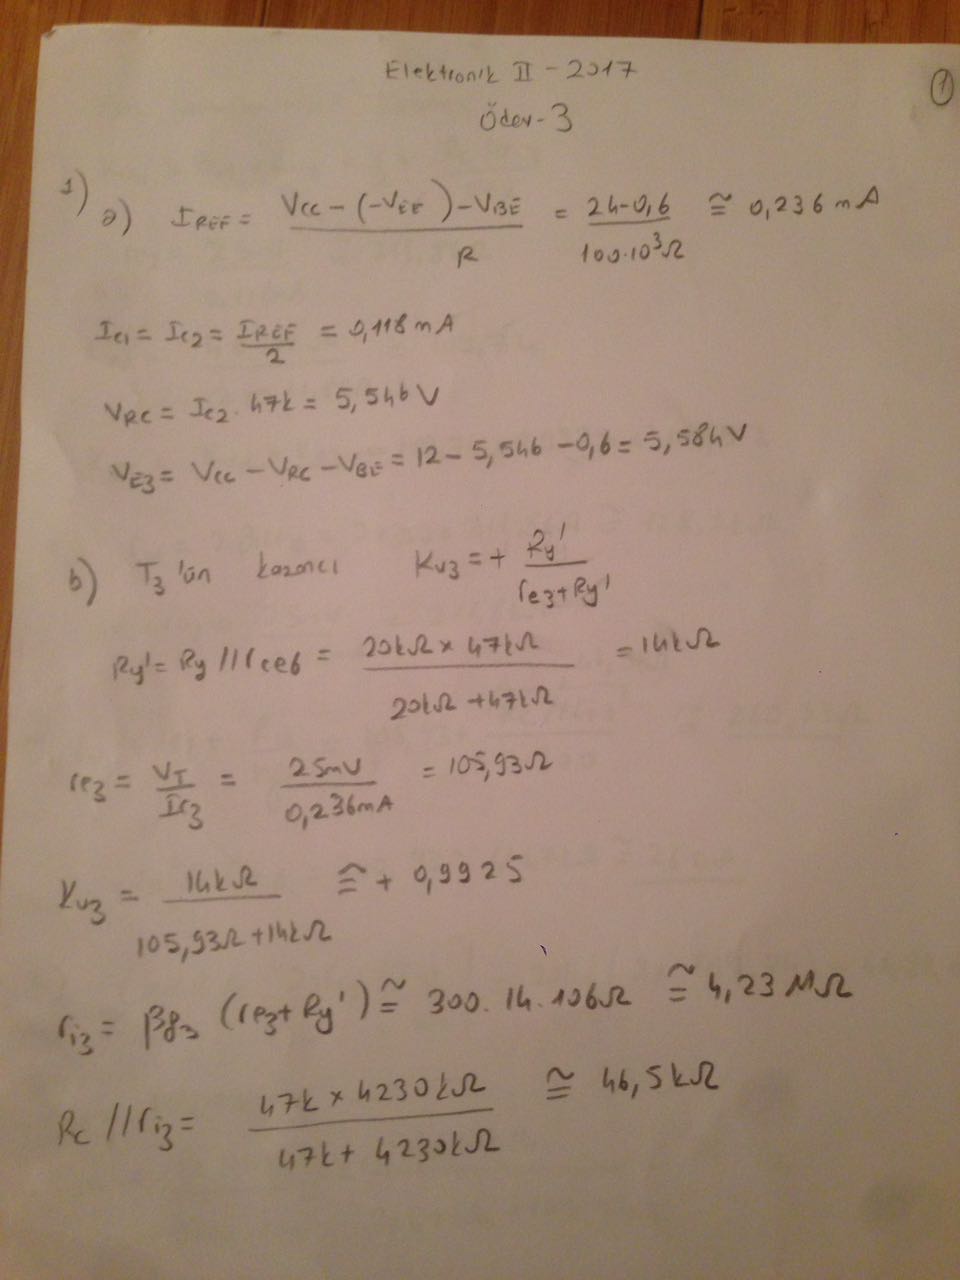 Elektronik II - 2017
①
Ödev-3
1)
a) I_REF = (V_CC - (-V_EE) - V_BE) / R = (24-0,6) / (100.10³Ω) ≅ 0,236 mA
I_C1 = I_C2 = I_REF / 2 = 0,118 mA
V_RC = I_C2 . 47k = 5,546 V
V_E3 = V_CC - V_RC - V_BE = 12 - 5,546 - 0,6 = 5,584 V
b) T_3 'ün kazancı K_v3 = + Ry' / (r_e3 + Ry')
Ry' = Ry // r_ce6 = (20kΩ x 47kΩ) / (20kΩ + 47kΩ) = 14kΩ
r_e3 = V_T / I_C3 = 25mV / 0,236mA = 105,93Ω
K_v3 = 14kΩ / (105,93Ω + 14kΩ) ≅ + 0,9925
r_i3 = β_F3 (r_e3 + Ry') ≅ 300 . 14.106Ω ≅ 4,23 MΩ
R_C // r_i3 = (47k x 4230kΩ) / (47k + 4230kΩ) ≅ 46,5kΩ